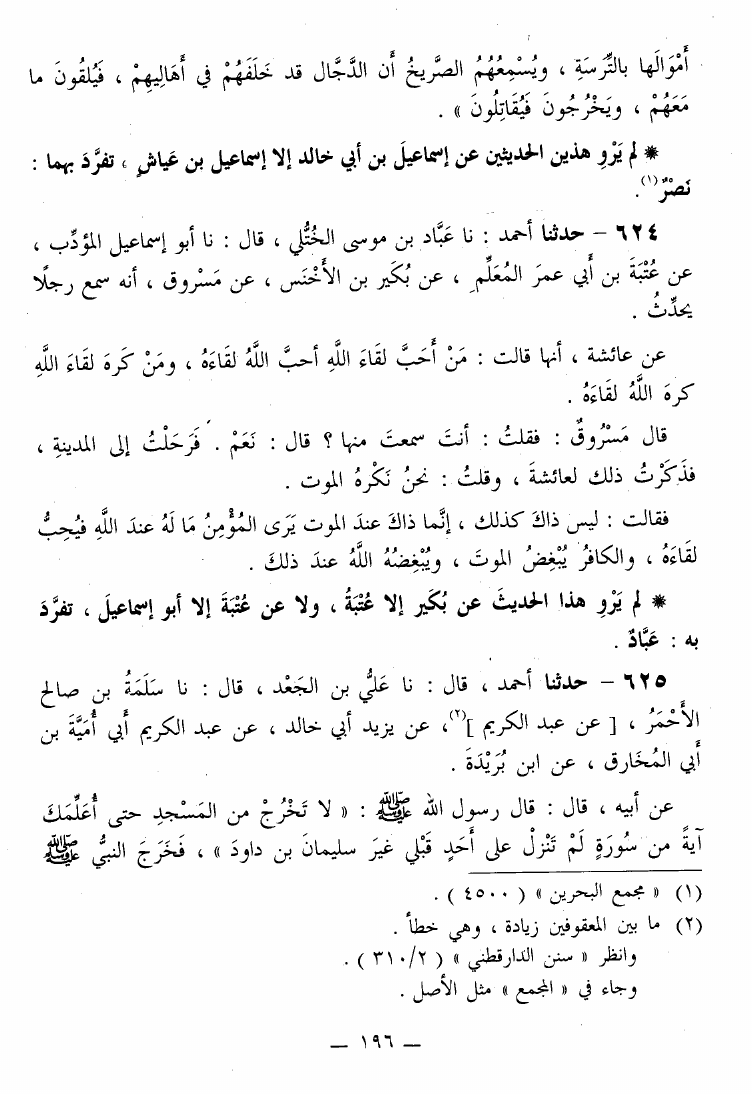 أَمْوَالَها بالتِّرَسَةِ ، ويُسْمِعُهُمُ الصَّرِيخُ أَن الدَّجَّال قد خَلَفَهُمْ في أَهَالِيهِمْ ، فَيُلقُونَ ما
مَعَهُمْ ، ويَخْرُجُونَ فَيُقَاتِلُونَ » .
* لم يَرْوِ هذين الحديثين عن إسماعيلَ بن أبي خالد إلا إسماعيل بن عَياشٍ ، تفرَّدَ بهما :
نَصْرٌ(١).
٦٢٤ – حدثنا أحمد : نا عَبَّاد بن موسى الخُتُّلي ، قال : نا أبو إسماعيل المؤدِّب ،
عن عُتْبَةَ بن أَبي عمرَ المُعَلِّمِ ، عن بُكَير بن الأَخْنَس ، عن مَسْروق ، أنه سمع رجلًا
يحدِّثُ .
عن عائشة ، أنها قالت : مَنْ أَحَبَّ لقَاءَ اللَّهِ أحبَّ اللَّهُ لقَاءَهُ ، ومَنْ كَرهَ لقَاءَ اللَّهِ
كرهَ اللَّهُ لقَاءَهُ .
قال مَسْروقٌ : فقلتُ : أنتَ سمعتَ منها ؟ قال : نَعَمْ . فَرَحَلْتُ إلى المدينةِ ،
فذَكَرْتُ ذلك لعائشةَ ، وقلتُ : نحنُ نَكْرهُ الموت .
فقالت : ليس ذاكَ كذلك ، إنَّما ذاكَ عندَ الموت يَرَى المُؤْمِنُ مَا لَهُ عندَ اللَّهِ فيُحِبُّ
لقَاءَهُ ، والكافرُ يُبْغِضُ الموتَ ، ويُبْغِضُهُ اللَّهُ عندَ ذلكَ .
* لم يَرْوِ هذا الحديثَ عن بُكَير إلا عُتْبَةُ ، ولا عن عُتْبَةَ إلا أبو إسماعيلَ ، تفرَّدَ
به : عَبَّادٌ .
٦٢٥ – حدثنا أحمد ، قال : نا عَليُّ بن الجَعْد ، قال : نا سَلَمَةُ بن صالح
الأَحْمَرُ ، [ عن عبد الكريم ](٢)، عن يزيد أبي خالد ، عن عبد الكريم أَبي أُمَيَّةَ بن
أبي المُخَارق ، عن ابن بُرَيْدَةَ .
عن أبيه ، قال : قال رسول الله ﷺ : « لا تَخْرُجْ من المَسْجدِ حتى أُعَلِّمَكَ
آيةً من سُورَةٍ لَمْ تَنْزِلْ على أَحَدٍ قَبْلي غيرَ سليمانَ بن داودَ » ، فَخَرَجَ النبيُّ ﷺ
(١) « مجمع البحرين » ( ٤٥٠٠ ) .
(٢) ما بين المعقوفين زيادة ، وهي خطأ .
وانظر « سنن الدارقطني » ( ٣١٠/٢ ) .
وجاء في « المجمع » مثل الأصل .
— ١٩٦ —